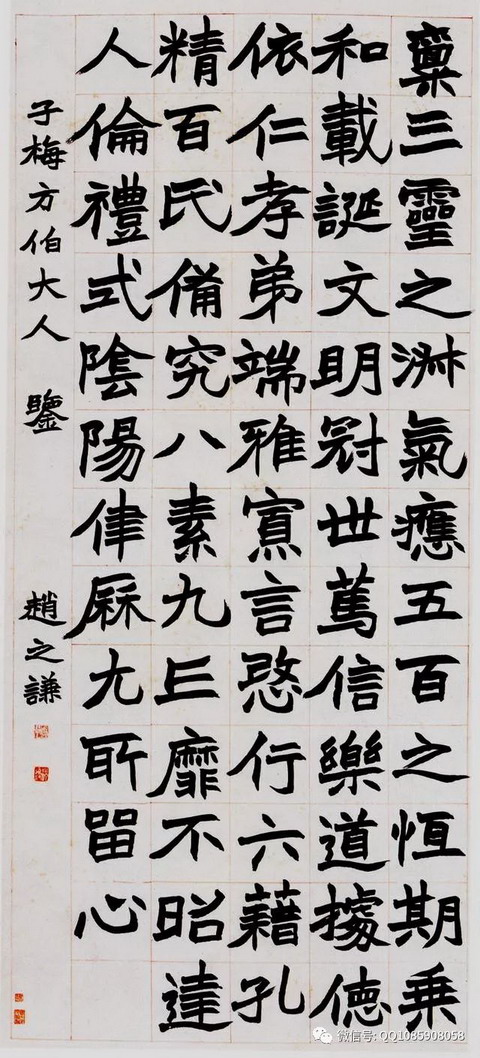 稟三靈之淑氣應五百之恆期乘
和載誕文明冠世篤信樂道據德
依仁孝弟端雅寡言慜行六藉孔
精百氏備究八素九丘靡不昭達
人倫禮式陰陽律厤尤所留心
子梅方伯大人 鑒 趙之謙
微信号: QQ1085908058